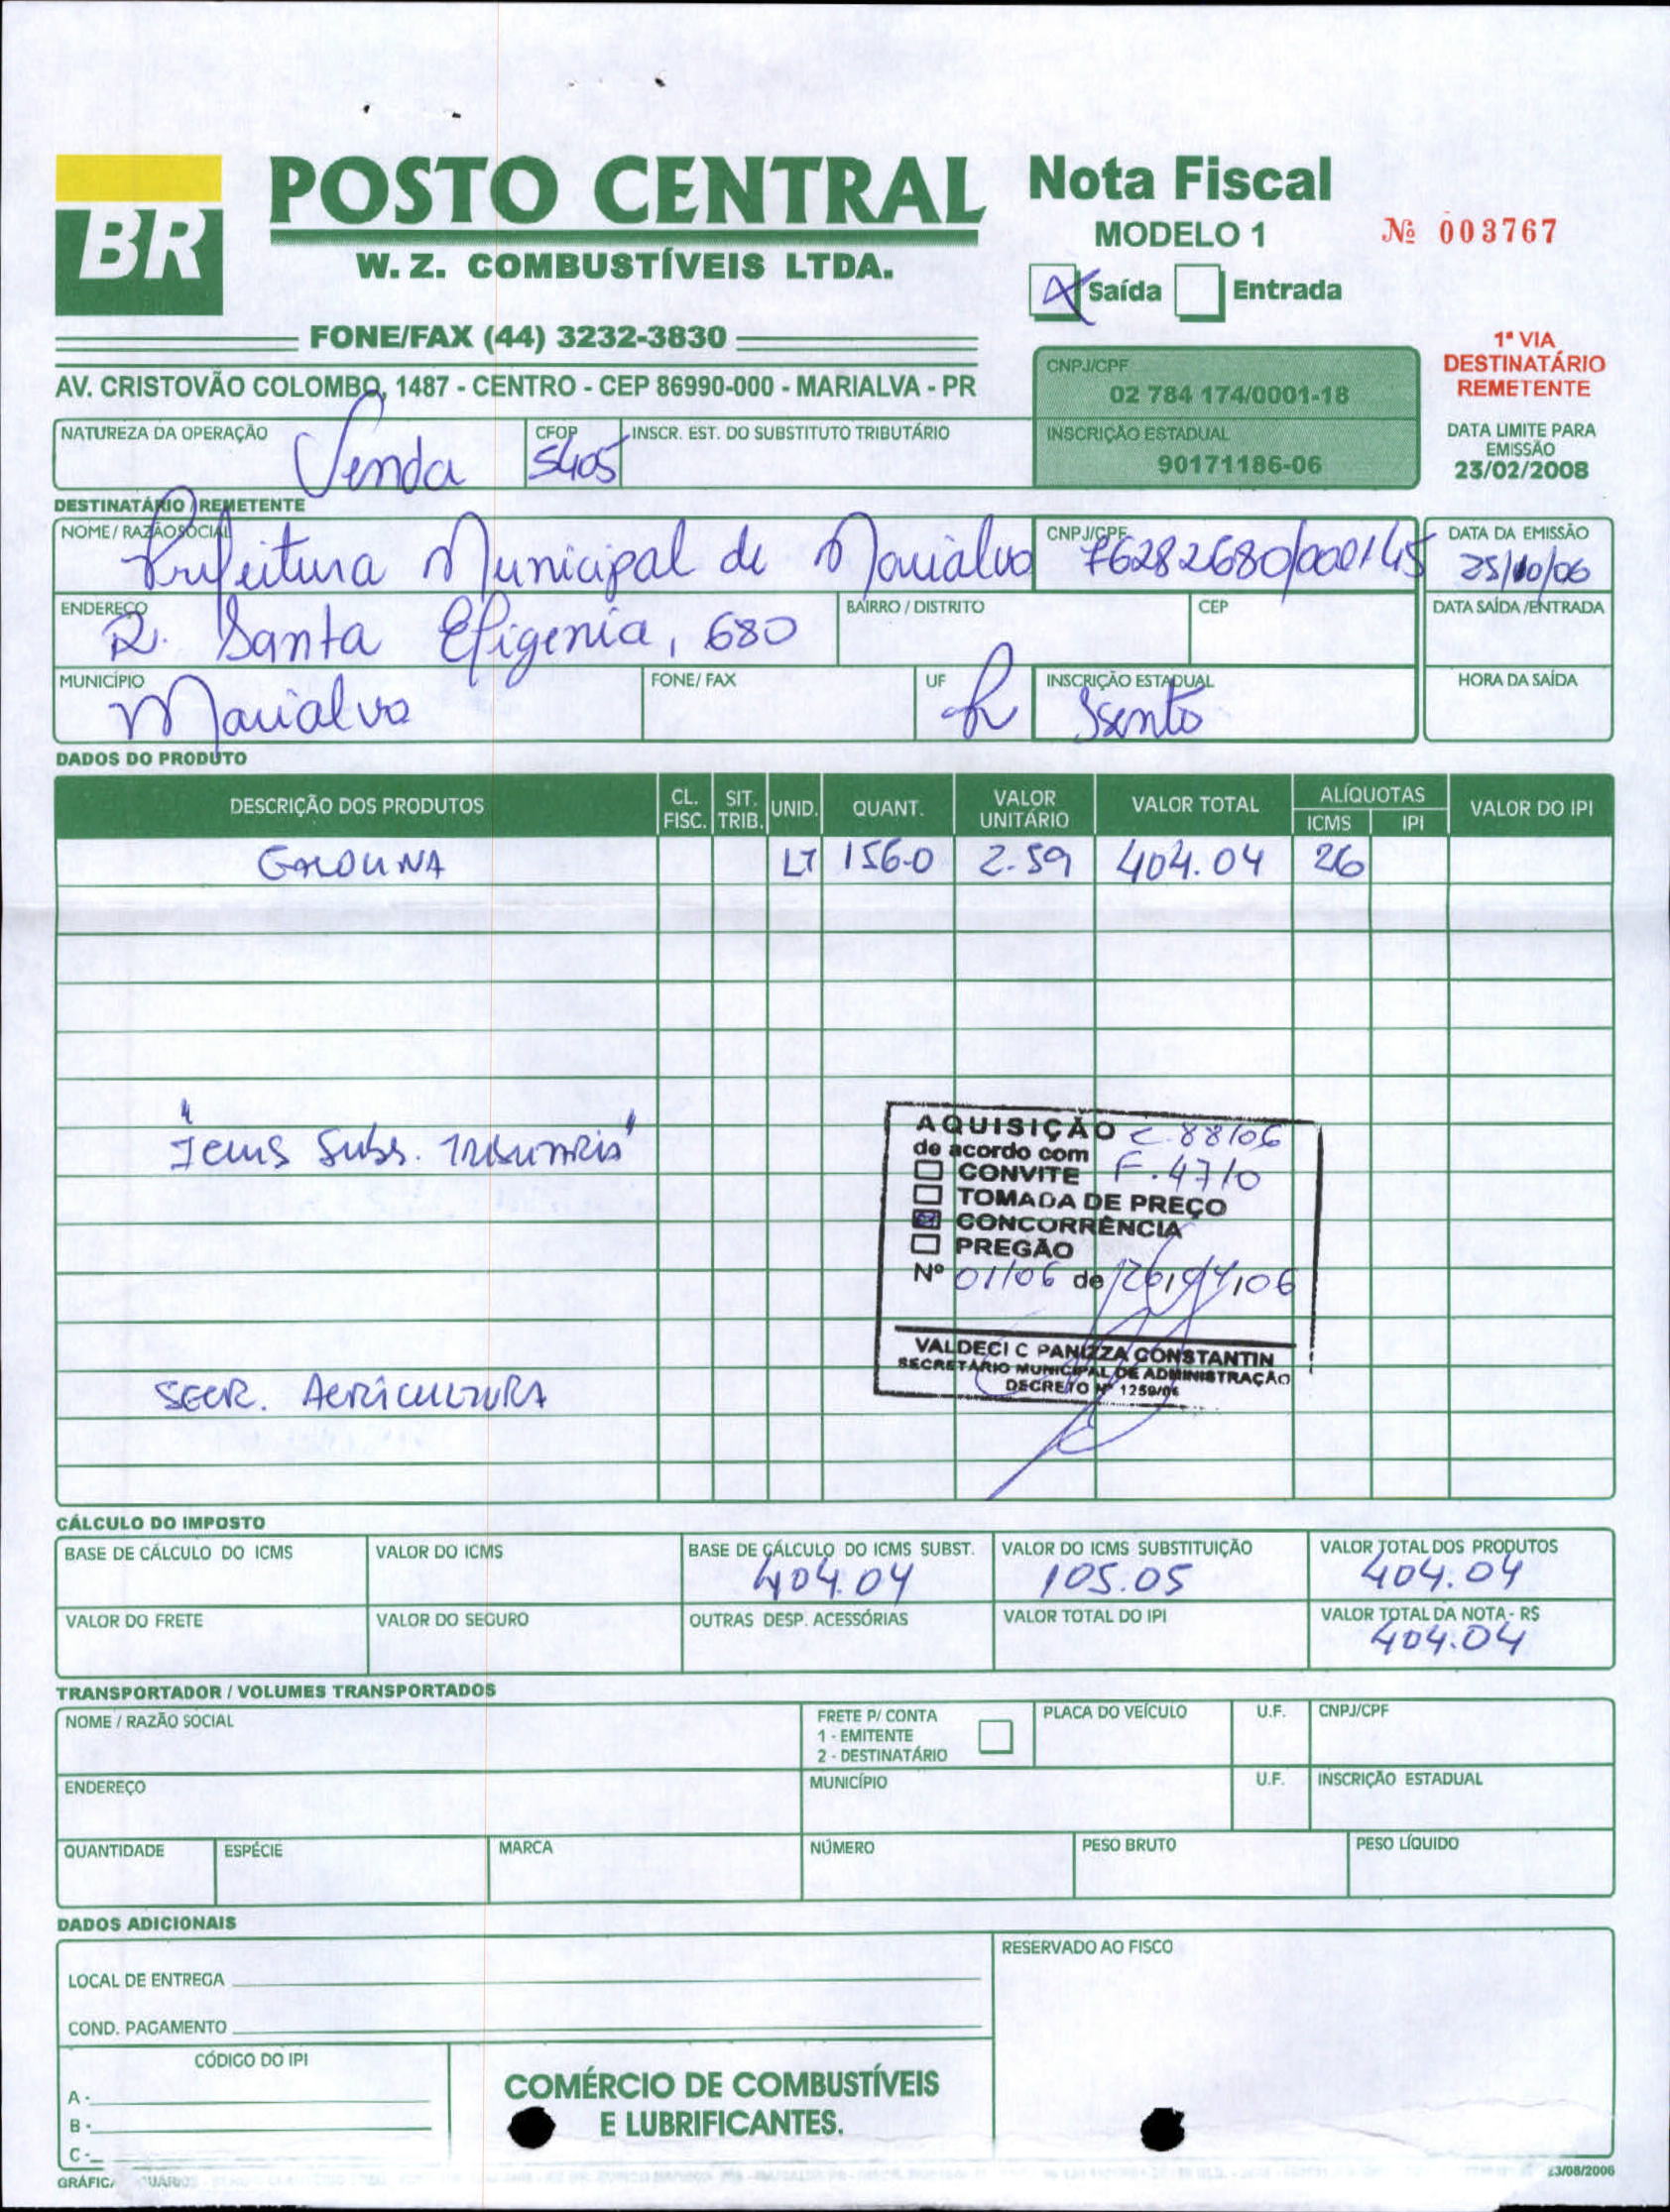 BR
POSTO CENTRAL
W. Z. COMBUSTÍVEIS LTDA.
FONE/FAX (44) 3232-3830
AV. CRISTOVÃO COLOMBO, 1487 - CENTRO - CEP 86990-000 - MARIALVA - PR
Nota Fiscal
MODELO 1
Nº 003767
X Saída Entrada
1ª VIA
DESTINATÁRIO
REMETENTE
CNPJ/CPF
02 784 174/0001-18
INSCRIÇÃO ESTADUAL
90171186-06
DATA LIMITE PARA
EMISSÃO
23/02/2008
NATUREZA DA OPERAÇÃO
Venda
CFOP
5405
INSCR. EST. DO SUBSTITUTO TRIBUTÁRIO
DESTINATÁRIO / REMETENTE
NOME / RAZÃO SOCIAL
Prefeitura Municipal de Marialva
CNPJ/CPF
76282680/000145
DATA DA EMISSÃO
25/10/06
ENDEREÇO
R. Santa Efigenia, 680
BAIRRO / DISTRITO
CEP
DATA SAÍDA /ENTRADA
MUNICÍPIO
Marialva
FONE/ FAX
UF
Pr
INSCRIÇÃO ESTADUAL
Isento
HORA DA SAÍDA
DADOS DO PRODUTO
DESCRIÇÃO DOS PRODUTOS CL. FISC. SIT. TRIB. UNID. QUANT. VALOR UNITÁRIO VALOR TOTAL ALÍQUOTAS ICMS IPI VALOR DO IPI
GASOLINA LT 156.0 2.59 404.04 26
"Icms Subs. Tributaria"
AQUISIÇÃO C.88/06
de acordo com
CONVITE F.4710
TOMADA DE PREÇO
CONCORRÊNCIA
PREGÃO
Nº 01/06 de 26/04/06
VALDECI C PANIZZA CONSTANTIN
SECRETÁRIO MUNICIPAL DE ADMINISTRAÇÃO
DECRETO Nº 1259/06
SECR. AGRICULTURA
CÁLCULO DO IMPOSTO
BASE DE CÁLCULO DO ICMS
VALOR DO ICMS
BASE DE CÁLCULO DO ICMS SUBST.
404.04
VALOR DO ICMS SUBSTITUIÇÃO
105.05
VALOR TOTAL DOS PRODUTOS
404.04
VALOR DO FRETE
VALOR DO SEGURO
OUTRAS DESP. ACESSÓRIAS
VALOR TOTAL DO IPI
VALOR TOTAL DA NOTA - R$
404.04
TRANSPORTADOR / VOLUMES TRANSPORTADOS
NOME / RAZÃO SOCIAL
FRETE P/ CONTA
1 - EMITENTE
2 - DESTINATÁRIO
PLACA DO VEÍCULO
U.F.
CNPJ/CPF
ENDEREÇO
MUNICÍPIO
U.F.
INSCRIÇÃO ESTADUAL
QUANTIDADE
ESPÉCIE
MARCA
NÚMERO
PESO BRUTO
PESO LÍQUIDO
DADOS ADICIONAIS
LOCAL DE ENTREGA
COND. PAGAMENTO
RESERVADO AO FISCO
CÓDIGO DO IPI
A -
B -
C -
COMÉRCIO DE COMBUSTÍVEIS
E LUBRIFICANTES.
23/08/2006